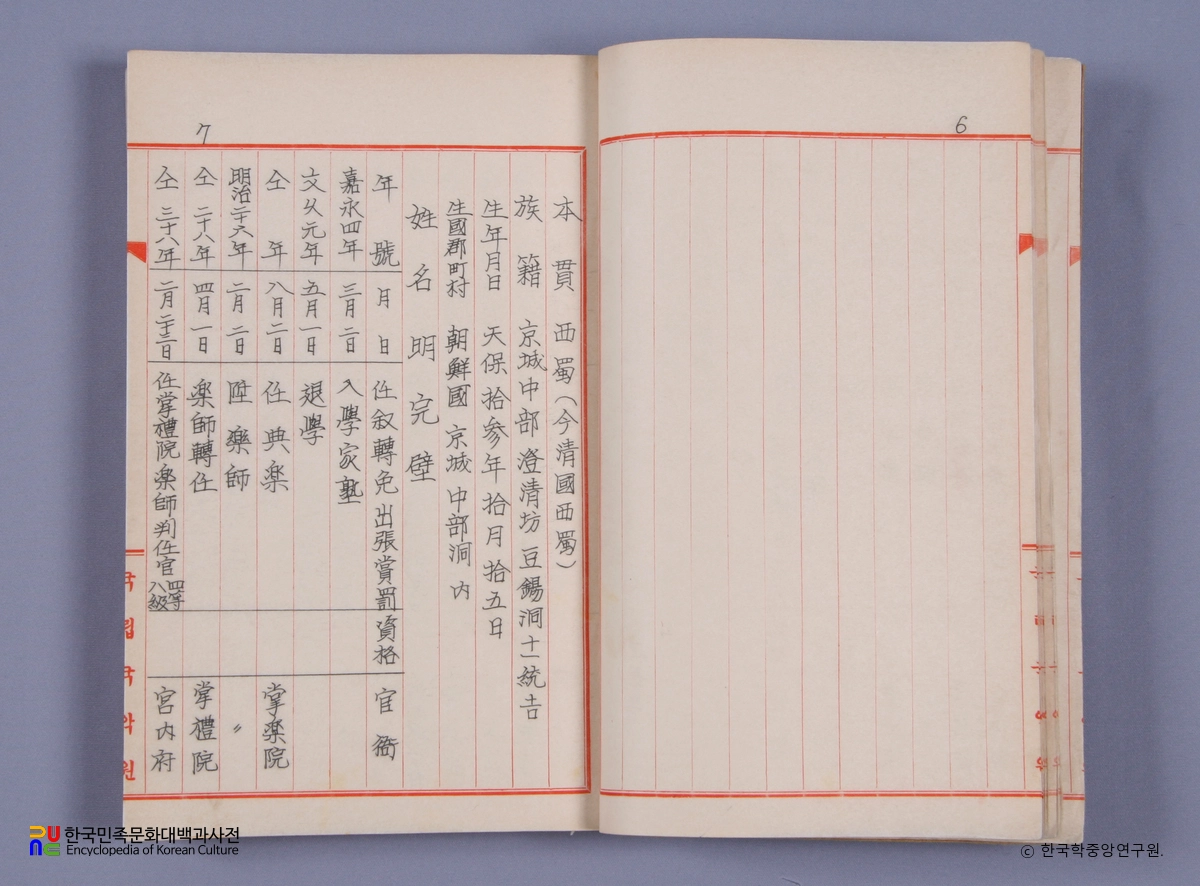 6
7
本貫 西蜀(今清國西蜀)
族籍 京城中部澄清坊豆錫洞十一統
生年月日 天保拾参年拾月拾五日
生國郡町村 朝鮮國京城中部洞内
姓名 明完壁
年號 月日 任叙轉免出張賞罰 資格 官衙
嘉永四年 三月二日 入學家塾
文久元年 五月一日 退學
仝年 八月二日 任典楽 掌楽院
明治二十六年 二月二日 陞楽師 〃
仝二十八年 四月一日 楽師轉任 掌禮院
仝三十八年 二月二十三日 任掌禮院楽師判任官四等八級 宮内府
국립국악원
한국민족문화대백과사전
Encyclopedia of Korean Culture
ⓒ 한국학중앙연구원.